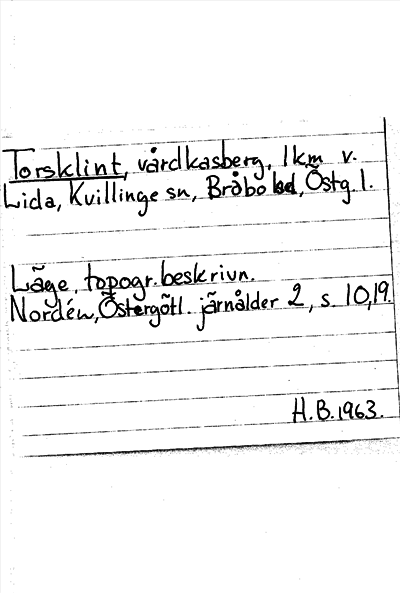 Torsklint, vårdkasberg, 1 km v.
Lida, Kvillinge sn, Bråbo hd, Östg. l.
Läge, topogr. beskrivn.
Nordén, Östergötl. järnålder 2, s. 10, 19.
H.B. 1963.